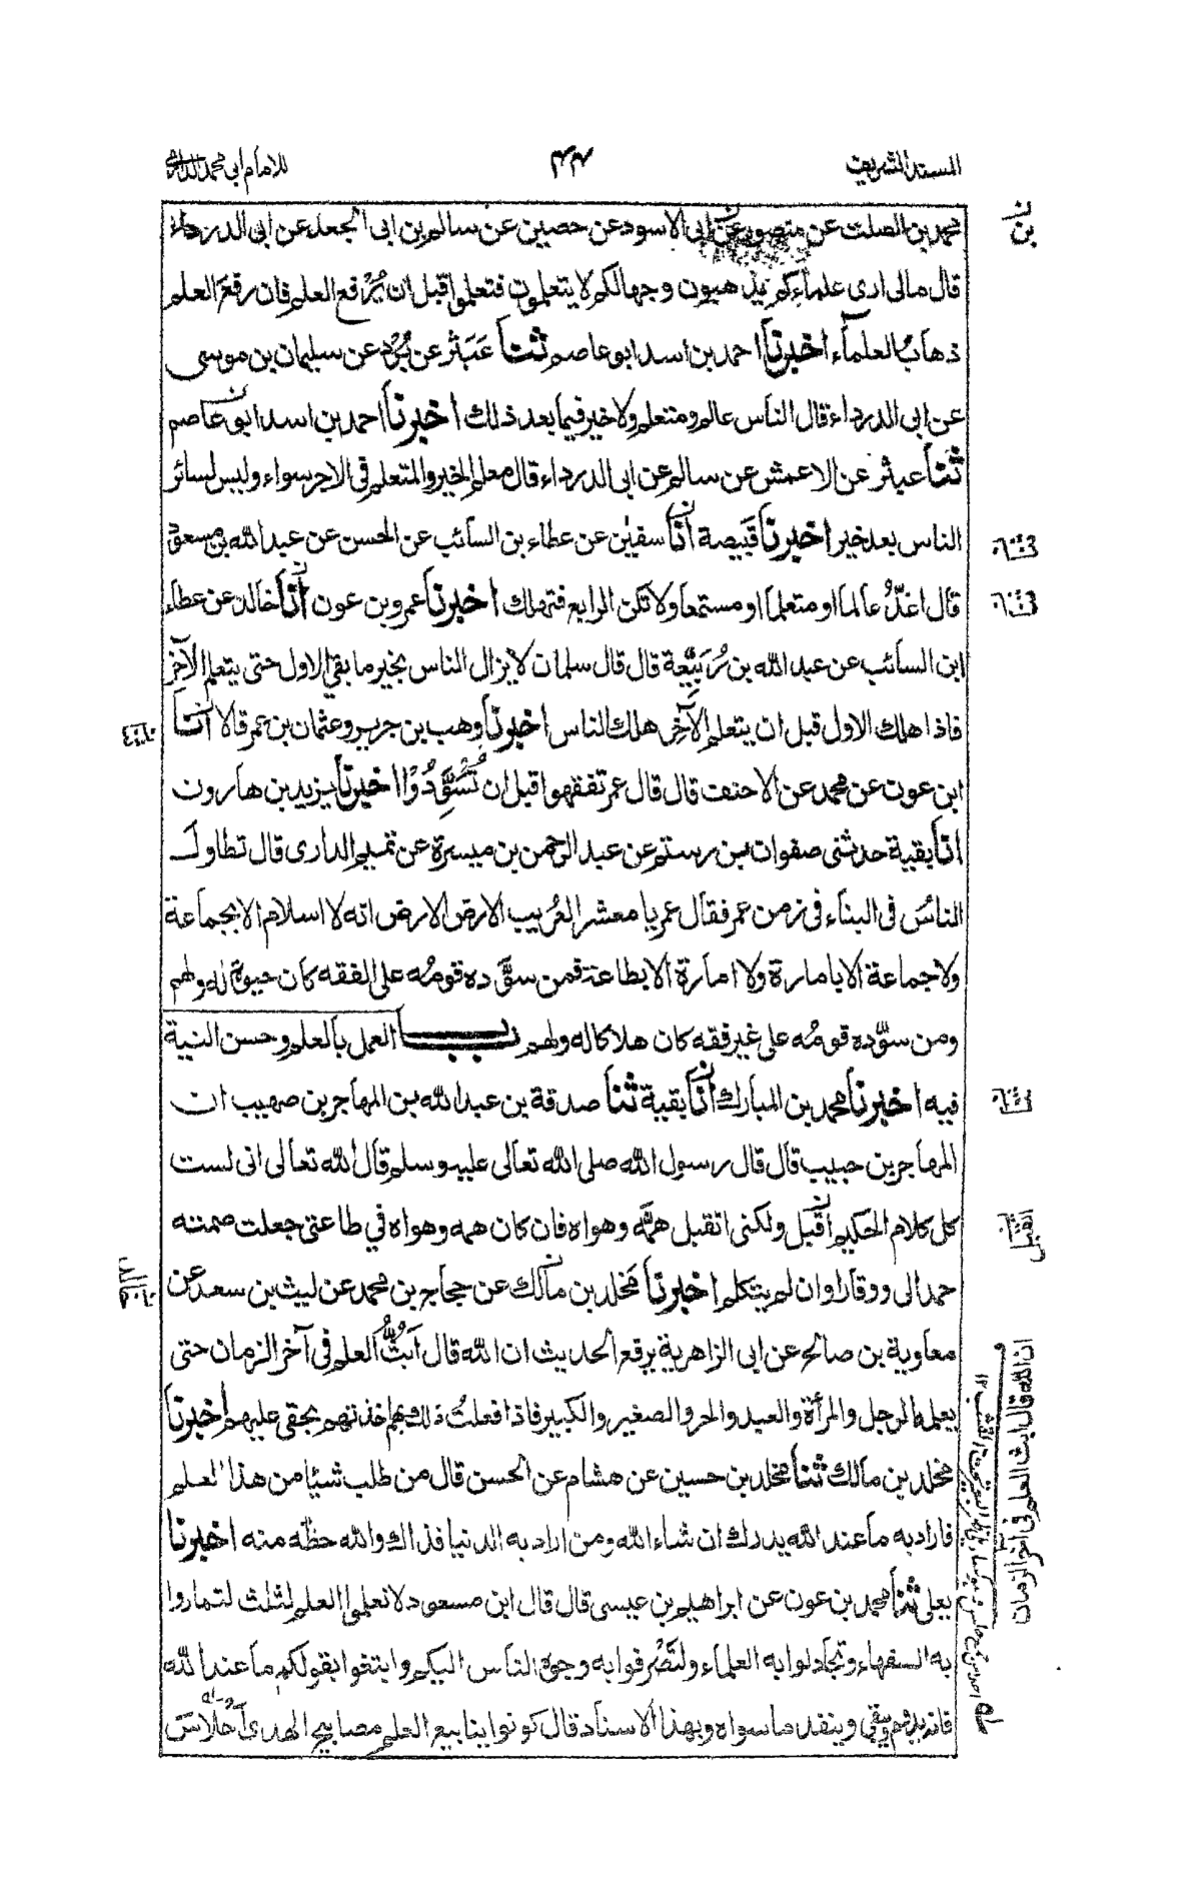 المسند الشريف
٤٤
للامام ابى محمد الدارمى
محمد بن الصلت عن منصور بن ابى الاسود عن حصين عن سالم بن ابى الجعد عن ابى الدرداء
قال مالى ارى علماءكم يذهبون وجهالكم لا يتعلمون فتعلموا قبل ان يُرْفع العلم فان رفعَ العلم
ذهابُ العلماء اخبرنا احمد بن اسد ابو عاصم ثنا عَبَثر عن بُرْد عن سليمان بن موسى
عن ابى الدرداء قال الناس عالم ومتعلم ولا خير فيما بعد ذلك اخبرنا احمد بن اسد ابو عاصم
ثنا عبثر عن الاعمش عن سالم عن ابى الدرداء قال معلم الخير والمتعلم فى الاجر سواء وليس لسائر
الناس بعد خير اخبرنا قَبيصة انا سفين عن عطاء بن السائب عن الحسن عن عبد الله بن مسعود
قال اغدُ عالما او متعلما او مستمعا ولا تكن الرابع فتهلك اخبرنا عمرو بن عون انا خالد عن عطاء
ابن السائب عن عبد الله بن رُبَيِّعة قال قال سلمان لا يزال الناس بخير ما بقى الاول حتى يتعلم الآخِر
فاذا هلك الاول قبل ان يتعلم الآخِر هلك الناس اخبرنا وهب بن جرير وعثمان بن عمر قالا انا
ابن عون عن محمد عن الاحنف قال قال عمر تفقهوا قبل ان تُسَوَّدُوْا اخبرنا يزيد بن هارون
انا بقية حدثنى صفوان بن رستم عن عبد الرحمن بن ميسرة عن تميم الدارى قال تطاول
الناسُ فى البناء فى زمن عمر فقال عمر يا معشر العُرَيب الارض الارض انه لا اسلام الا بجماعة
ولا جماعة الا بامارة ولا امارة الا بطاعة فمن سوَّده قومُه على الفقه كان حيوة له ولهم
ومن سوّده قومُه على غير فقه كان هلاكا له ولهم باب العمل بالعلم وحسن النية
فيه اخبرنا محمد بن المبارك انا بقية ثنا صدقة بن عبد الله بن المهاجر بن صهيب ان
المهاجر بن حبيب قال قال رسول الله صلى الله تعالى عليه وسلم قال الله تعالى انى لست
كل كلام الحكيم اقبل ولكنى اتقبل همَّه وهواه فان كان همه وهواه في طاعتى جعلت صمته
حمدا لى ووقارا وان لم يتكلم اخبرنا مَخلد بن مالك عن حجاج بن محمد عن ليث بن سعد عن
معاوية بن صالح عن ابى الزاهرية يرفع الحديث ان الله قال اَبُثُّ العلم فى آخر الزمان حتى
يعلمه الرجل والمرأة والعبد والحر والصغير والكبير فاذا فعلتُ ذلك بهم اخذتهم بحقى عليهم اخبرنا
مخلد بن مالك ثنا مخلد بن حسين عن هشام عن الحسن قال من طلب شيئا من هذا العلم
فاراد به ما عند الله يدرك ان شاء الله ومن اراد به الدنيا فذاك والله حظّه منه اخبرنا
يعلى ثنا محمد بن عون عن ابراهيم بن عيسى قال قال ابن مسعود لا تعلموا العلم لثلث لتماروا
به السفهاء وتجادلوا به العلماء ولتَصْرفوا به وجوه الناس اليكم وابتغوا بقولكم ما عند الله
فانه يدوم ويبقى وينفد ما سواه وبهذا الاسناد قال كونوا ينابيع العلم مصابيح الهدى اَحْلاسَ
بن
حدثنا
حدثنا
حدثنا
اتقبل
ان الله قال ابث العلم فى آخر الزمان